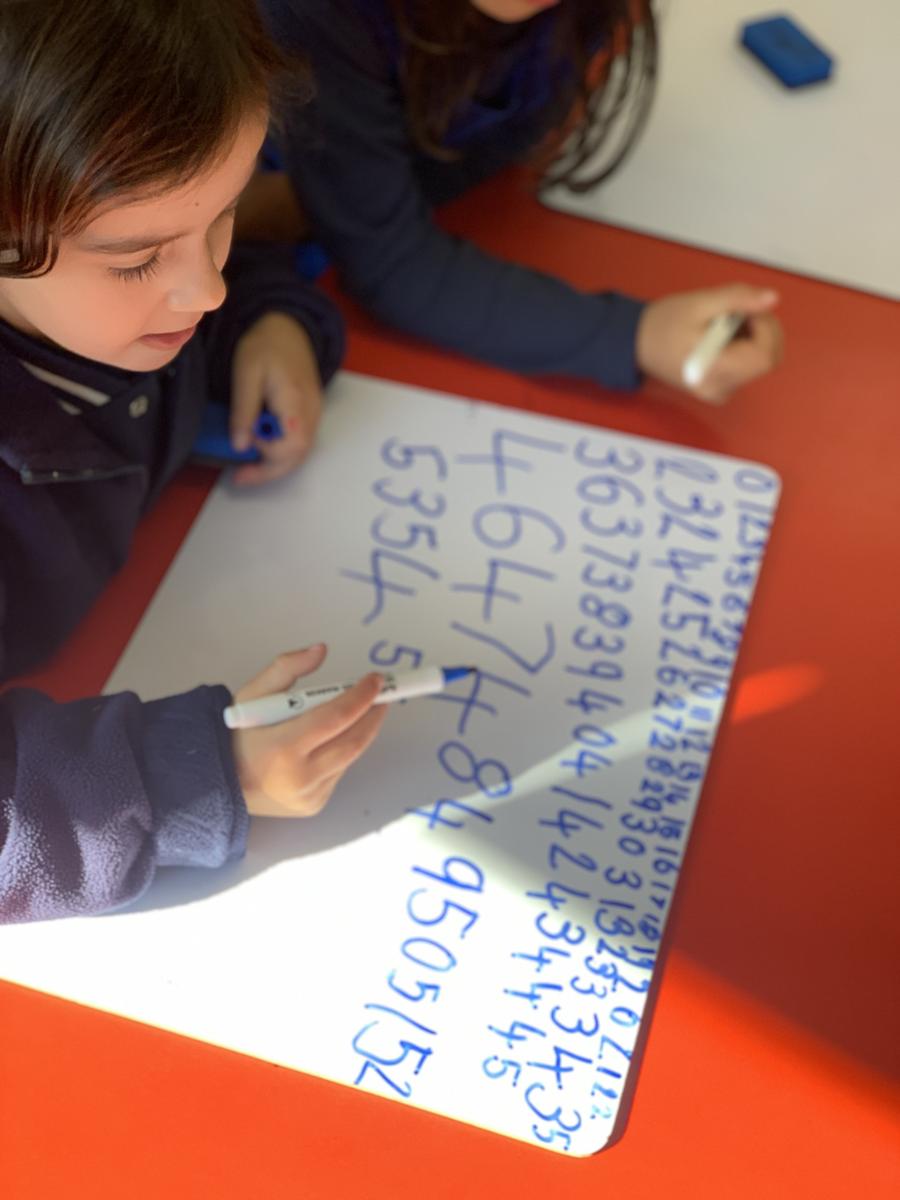 0 1 2 3 4 5 6 7 8 9 10 11 12 13 14 15 16 17 18 19 20 21 22
23 24 25 26 27 28 29 30 31 32 33 34 35
36 37 38 39 40 41 42 43 44 45
46 47 48 49 50 51 52
53 54 5